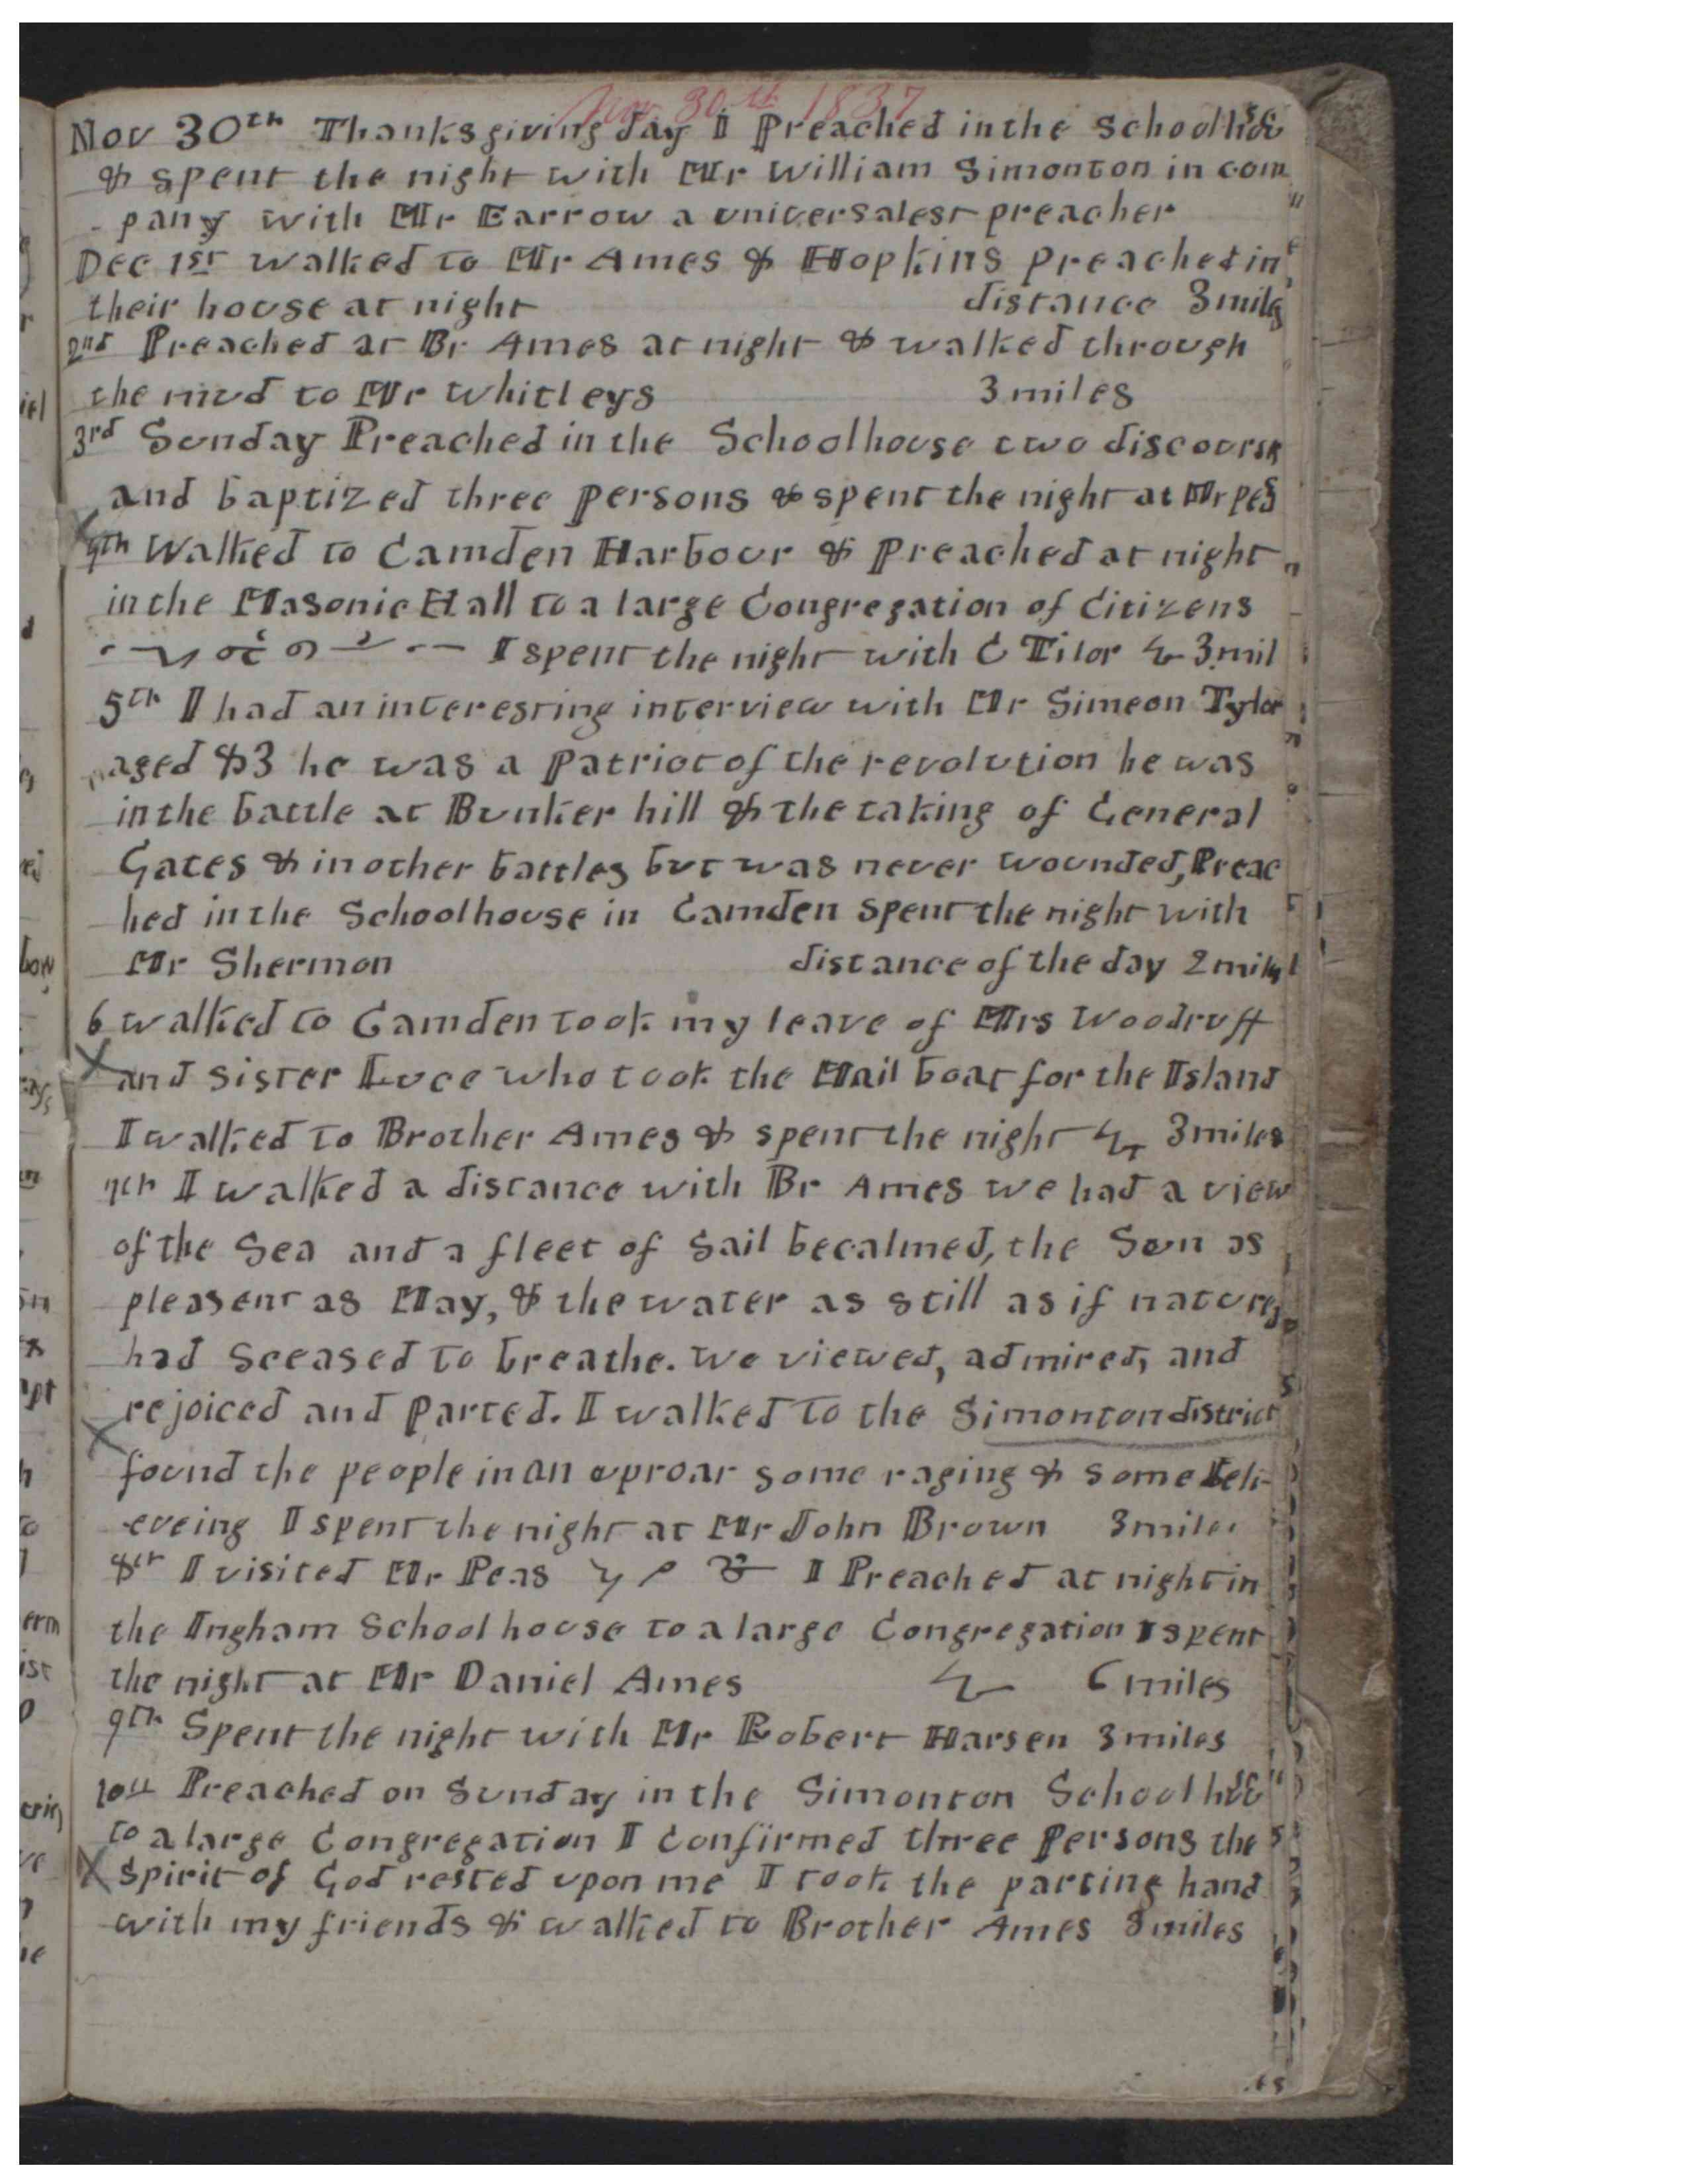 Nov 30th 1837
Nov 30th Thanksgiving day I Preached in the School house
& spent the night with Mr William Simonton in com
-pany with Mr Farrow a universalest preacher
Dec 1st walked to Mr Ames & Hopkins preached in
their house at night distance 3 miles
2nd Preached at Br Ames at night & walked through
the mud to Mr Whitleys 3 miles
3rd Sunday Preached in the Schoolhouse two discours
and baptized three persons & spent the night at Mr Peas
4th Walked to Camden Harbour & Preached at night
in the Masonic Hall to a large Congregation of Citizens
I spent the night with C Tilor 3 mil
5th I had an interesting interview with Mr Simeon Tylor
aged 83 he was a Patriot of the revolution he was
in the battle at Bunker hill & the taking of General
Gates & in other battles but was never wounded, Preac
hed in the Schoolhouse in Camden Spent the night with
Mr Shermon distance of the day 2 miles
6 walked to Camden took my leave of Mrs Woodruff
and Sister Luce who took the Mail boat for the Island
I walked to Brother Ames & spent the night 3 miles
7th I walked a distance with Br Ames we had a view
of the Sea and a fleet of Sail becalmed, the Sun as
pleasent as May, & the water as still as if nature
had Sceased to breathe. we viewed, admired, and
rejoiced and parted. I walked to the Simonton district
found the people in an uproar some raging & some beli-
eveing I spent the night at Mr John Brown 3 miles
8th I visited Mr Peas I Preached at night in
the Ingham School house to a large Congregation I spent
the night at Mr Daniel Ames 6 miles
9th Spent the night with Mr Robert Harsen 3 miles
10th Preached on Sunday in the Simonton School house
to a large Congregation I Confirmed three Persons the
Spirit of God rested upon me I took the parting hand
with my friends & walked to Brother Ames 3 miles